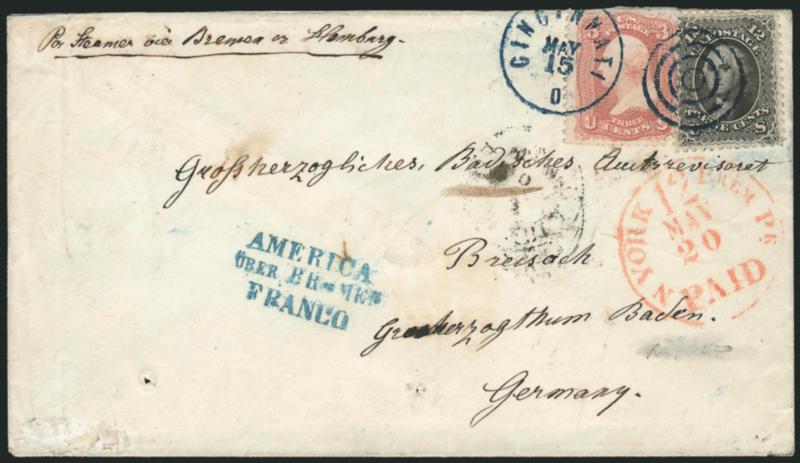 Per Steamer via Bremen or Hamburg.
CINCINNATI
MAY
15
O.
3 3
POSTAGE
U THREE S
CENTS
12 12
U.S. POSTAGE
TWELVE CENTS
S
Grosherzogliches, Badisches, Amtsrevisorat
Breisach
N YORK BREM PK
12
MAY
20
PAID
AMERICA
ÜBER BREMEN
FRANCO
Grosherzogthum Baden.
Germany.